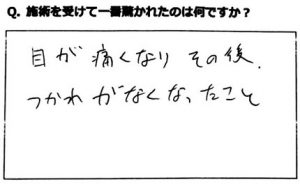 Q. 施術を受けて一番驚かれたのは何ですか？
目が 痛くなり その後、
つかれ がなくなったこと